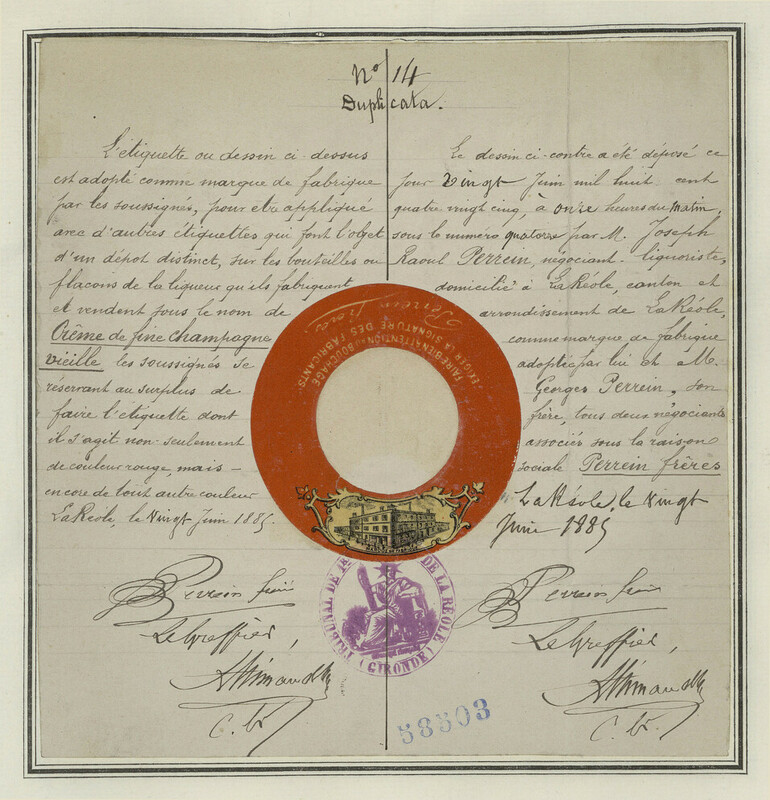 No 14
Duplicata.
L'étiquette ou dessin ci-dessus
est adopté comme marque de fabrique
par les soussignés, pour être appliqué
avec d'autres étiquettes qui font l'objet
d'un dépôt distinct, sur les bouteilles ou
flacons de la liqueur qu'ils fabriquent
et vendent sous le nom de
Crême de fine champagne
vieille les soussignés se
réservant au surplus de
faire l'étiquette dont
il s'agit non-seulement
de couleur rouge, mais -
encore de tout autre couleur
La Réole, le Vingt Juin 1885.
Perrein frères
Le Greffier,
Le dessin ci-contre a été déposé ce
jour Vingt Juin mil huit cent
quatre vingt cinq, à onze heures du matin,
sous le numéro quatorze par M. Joseph
Raoul Perrein, négociant-liquoriste,
domicilié à La Réole, canton et
arrondissement de La Réole,
comme marque de fabrique
adoptée par lui et M.
Georges Perrein, son
frère, tous deux négociants
associés sous la raison
sociale Perrein frères
La Réole, le Vingt
Juin 1885
Perrein frères
Le Greffier,
FAIRE BIEN ATTENTION AU BOUCHAGE
EXIGER LA SIGNATURE DES FABRICANTS
Perrein frères
TRIBUNAL DE DE LA RÉOLE
(GIRONDE)
58503